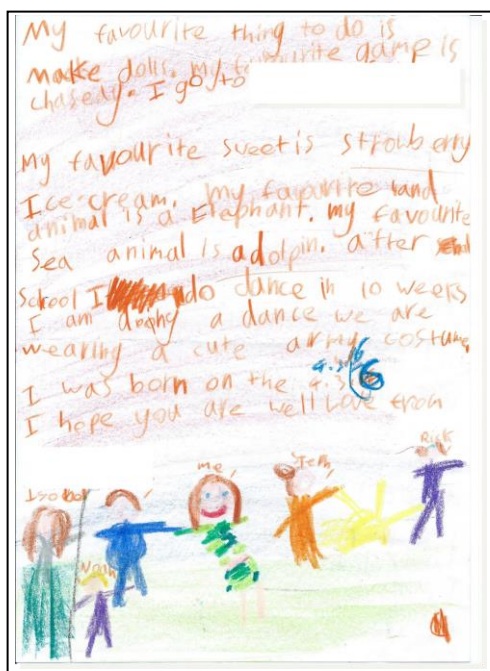 My favourite thing to do is
make dolls. my favourite game is
chasedy. I go to
My favourite sweet is strowberry
Ice-cream. My favourite land
animal is a Elephant. my favourite
Sea animal is a dolpin. after
School I do dance in 10 weers
I am doing a dance we are
wearing a cute army costume
I was born on the 4.3
6
I hope you are well Love from
Isobel
me
Jem
Rick
Noah